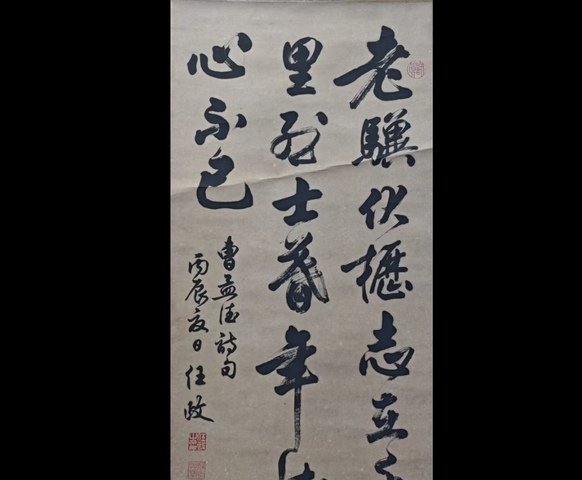 老驥伏櫪志在千
里烈士暮年
心不已
曹孟德詩句
丙辰夏日任政